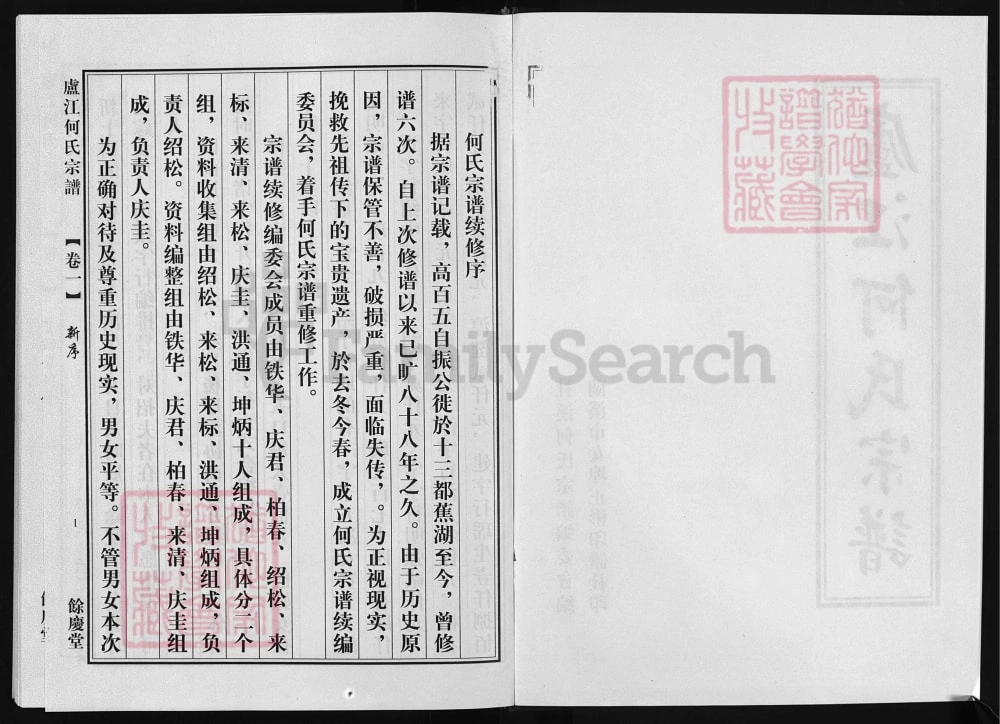 何氏宗谱续修序
据宗谱记载，高百五自振公徙於十三都蕉湖至今，曾修
谱六次。自上次修谱以来已旷八十八年之久。由于历史原
因，宗谱保管不善，破损严重，面临失传，。为正视现实，
挽救先祖传下的宝贵遗产　於去冬今春，成立何氏宗谱续编
委员会，着手何氏宗谱重修工作。
宗谱续修编委会成员由铁华、庆君、柏春、绍松、来
标、来清、来松、庆圭、洪通、坤炳十人组成，具体分二个
组，资料收集组由绍松、来松、来标、洪通、坤炳组成，负
责人绍松。资料编整组由铁华、庆君、柏春、来清、庆圭组
成，负责人庆圭。
为正确对待及尊重历史现实，男女平等。不管男女本次
盧江何氏宗譜　【卷一】　新序　1　餘慶堂
FamilySearch
猶他家
譜學會
收藏
猶他家
譜學會
收藏